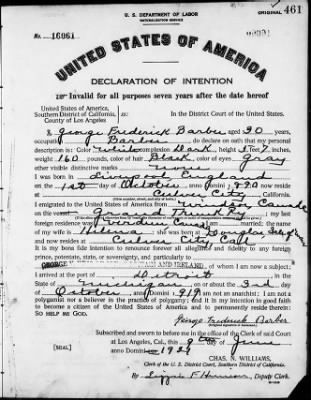 U. S. DEPARTMENT OF LABOR
NATURALIZATION SERVICE
ORIGINAL 461
No. 16061
UNITED STATES OF AMERICA
DECLARATION OF INTENTION
Invalid for all purposes seven years after the date hereof
United States of America,
Southern District of California,
County of Los Angeles
In the District Court of the United States.
I, George Frederick Barber aged 30 years,
occupation Barber, do declare on oath that my personal
description is: Color White, complexion Dark, height 5 ft. 7 inches,
weight 160 pounds, color of hair Black, color of eyes gray
other visible distinctive marks none
I was born in Liverpool England
on the 1st day of October, anno Domini 1890 now reside
at Culver City, California.
I emigrated to the United States of America from Windsor Canada
on the vessel Grand Trunk Ry; my last
foreign residence was
my wife is; she was born at Douglas Isle of
and now resides at Culver City Calif
It is my bona fide intention to renounce forever all allegiance and fidelity to any foreign
prince, potentate, state, or sovereignty, and particularly to
GEORGE IRELAND, of whom I am now a subject;
I arrived at the port of Detroit, in the
State of Michigan, on or about the 3rd day
of October, anno Domini 1919; I am not an anarchist; I am not a
polygamist nor a believer in the practice of polygamy; and it is my intention in good faith
to become a citizen of the United States of America and to permanently reside therein:
SO HELP ME GOD.
George Frederick Barber
Subscribed and sworn to before me in the office of the Clerk of said Court
at Los Angeles, Cal., this 9th day of June
anno Domini 1921
[SEAL]
CHAS. N. WILLIAMS,
Clerk of the U. S. District Court, Southern District of California.
By, Deputy Clerk.